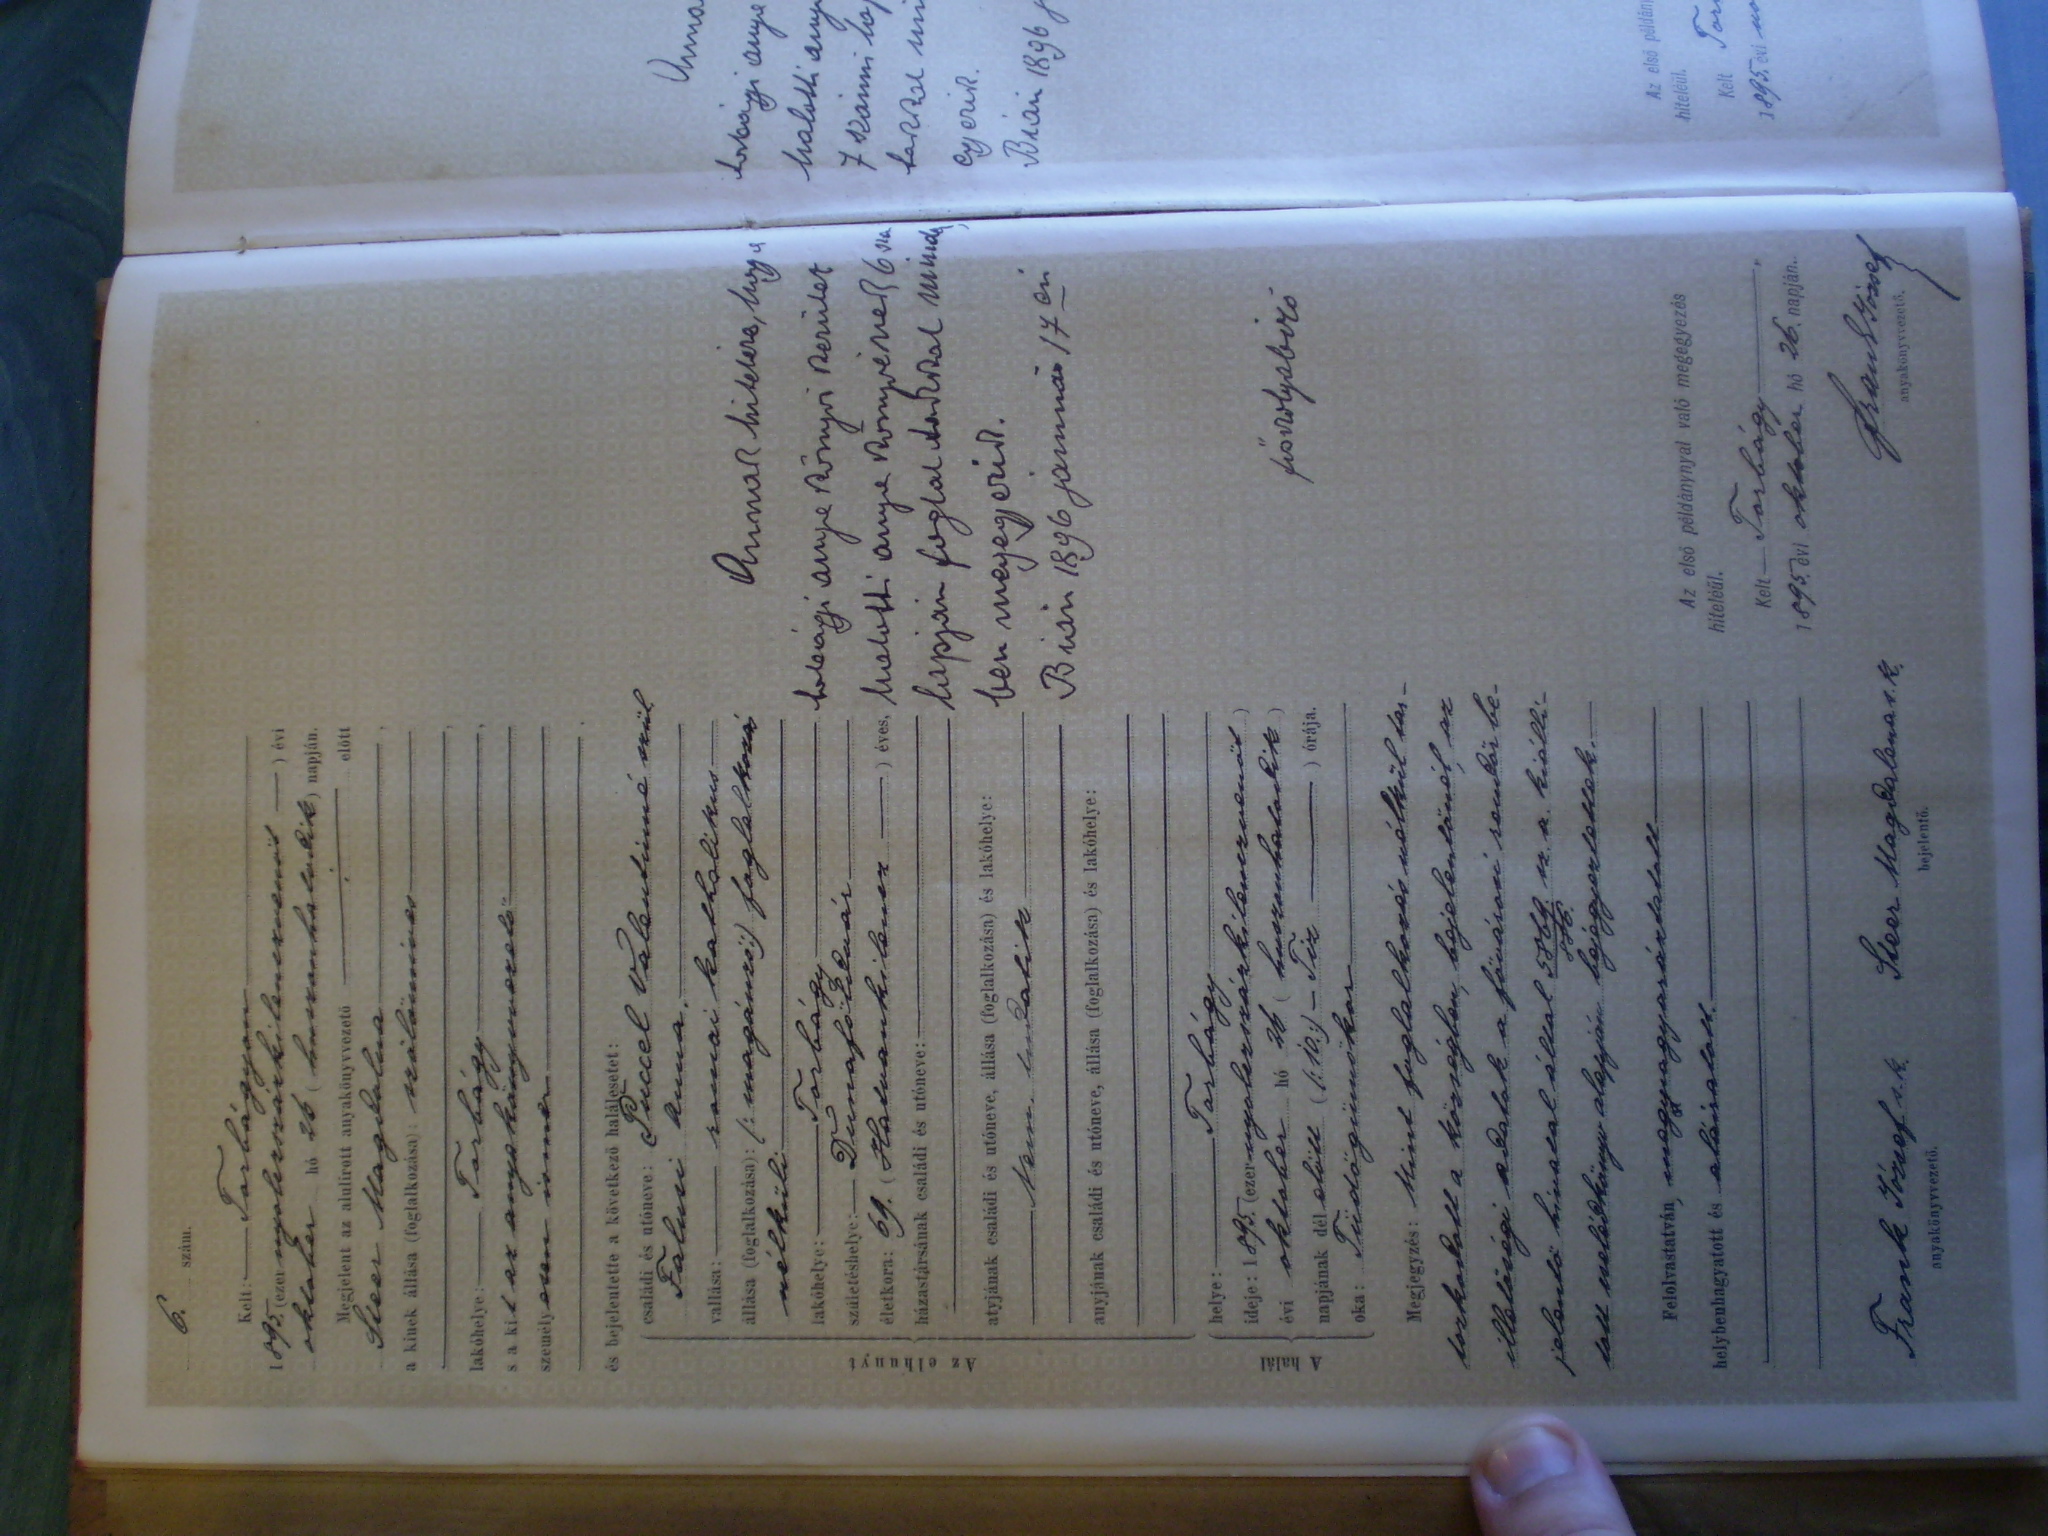 6. szám.
Kelt: Torbágyon
1895. (ezer nyolczszázkilenczvenöt) évi
október hó 26 (huszonhatodik) napján.
Megjelent az alulirott anyakönyvvezető előtt
Seer Magdolna
a kinek állása (foglalkozása): földmíves
lakóhelye: Torbágy
s a kit az anyakönyvvezető
személyesen ismer
és bejelentette a következő halálesetet:
Az elhunyt
családi és utóneve: Puccel Valentinné szül
Falusi Anna.
vallása: római katholikus
állása (foglalkozása): (: magánzó:) foglalkozás
nélküli
lakóhelye: Torbágy
születéshelye: Dunaföldvár
életkora: 69. (Hatvankilencz) éves,
házastársának családi és utóneve:
atyjának családi és utóneve, állása (foglalkozása) és lakóhelye:
Nem tudatik
anyjának családi és utóneve, állása (foglalkozása) és lakóhelye:
A halál
helye: Torbágy
ideje: 1895. (ezer nyolczszázkilenczvenöt)
évi október hó 26 (huszonhatodik)
napjának dél előtt (:10:) Tíz ) órája.
oka: Tüdőgümőkor
Megjegyzés: Mint foglalkozás nélkül tar-
tózkodott a községben, bejelentőnél, az
illetőségi adatok a fővárosi rendőr be-
jelentő hivatal által 5569 sz. a. kiállí-
tott cselédkönyv alapján bejegyeztettek.
Felolvastatván, megmagyaráztatott
helybenhagyatott és aláiratott.
Frank József s.k. Seer Magdolna s.k.
anyakönyvvezető. bejelentő.
Annak hitelére, hogy a
torbágyi anyakönyvi kerület
halotti anyakönyvének 6 sz
lapján foglaltakkal minden-
ben megegyezik.
Bián 1896 január 17 én
főszolgabíró
Az első példánynyal való megegyezés
hiteléül.
Kelt Torbágy,
1895. évi október hó 26. napján.
Frank József
anyakönyvvezető.
Anna
torbágyi anya
halotti any
7 számú lap
takkal mi
egyezik.
Bián 1896 j
Az első példány
hiteléül.
Kelt Tor
1895 évi